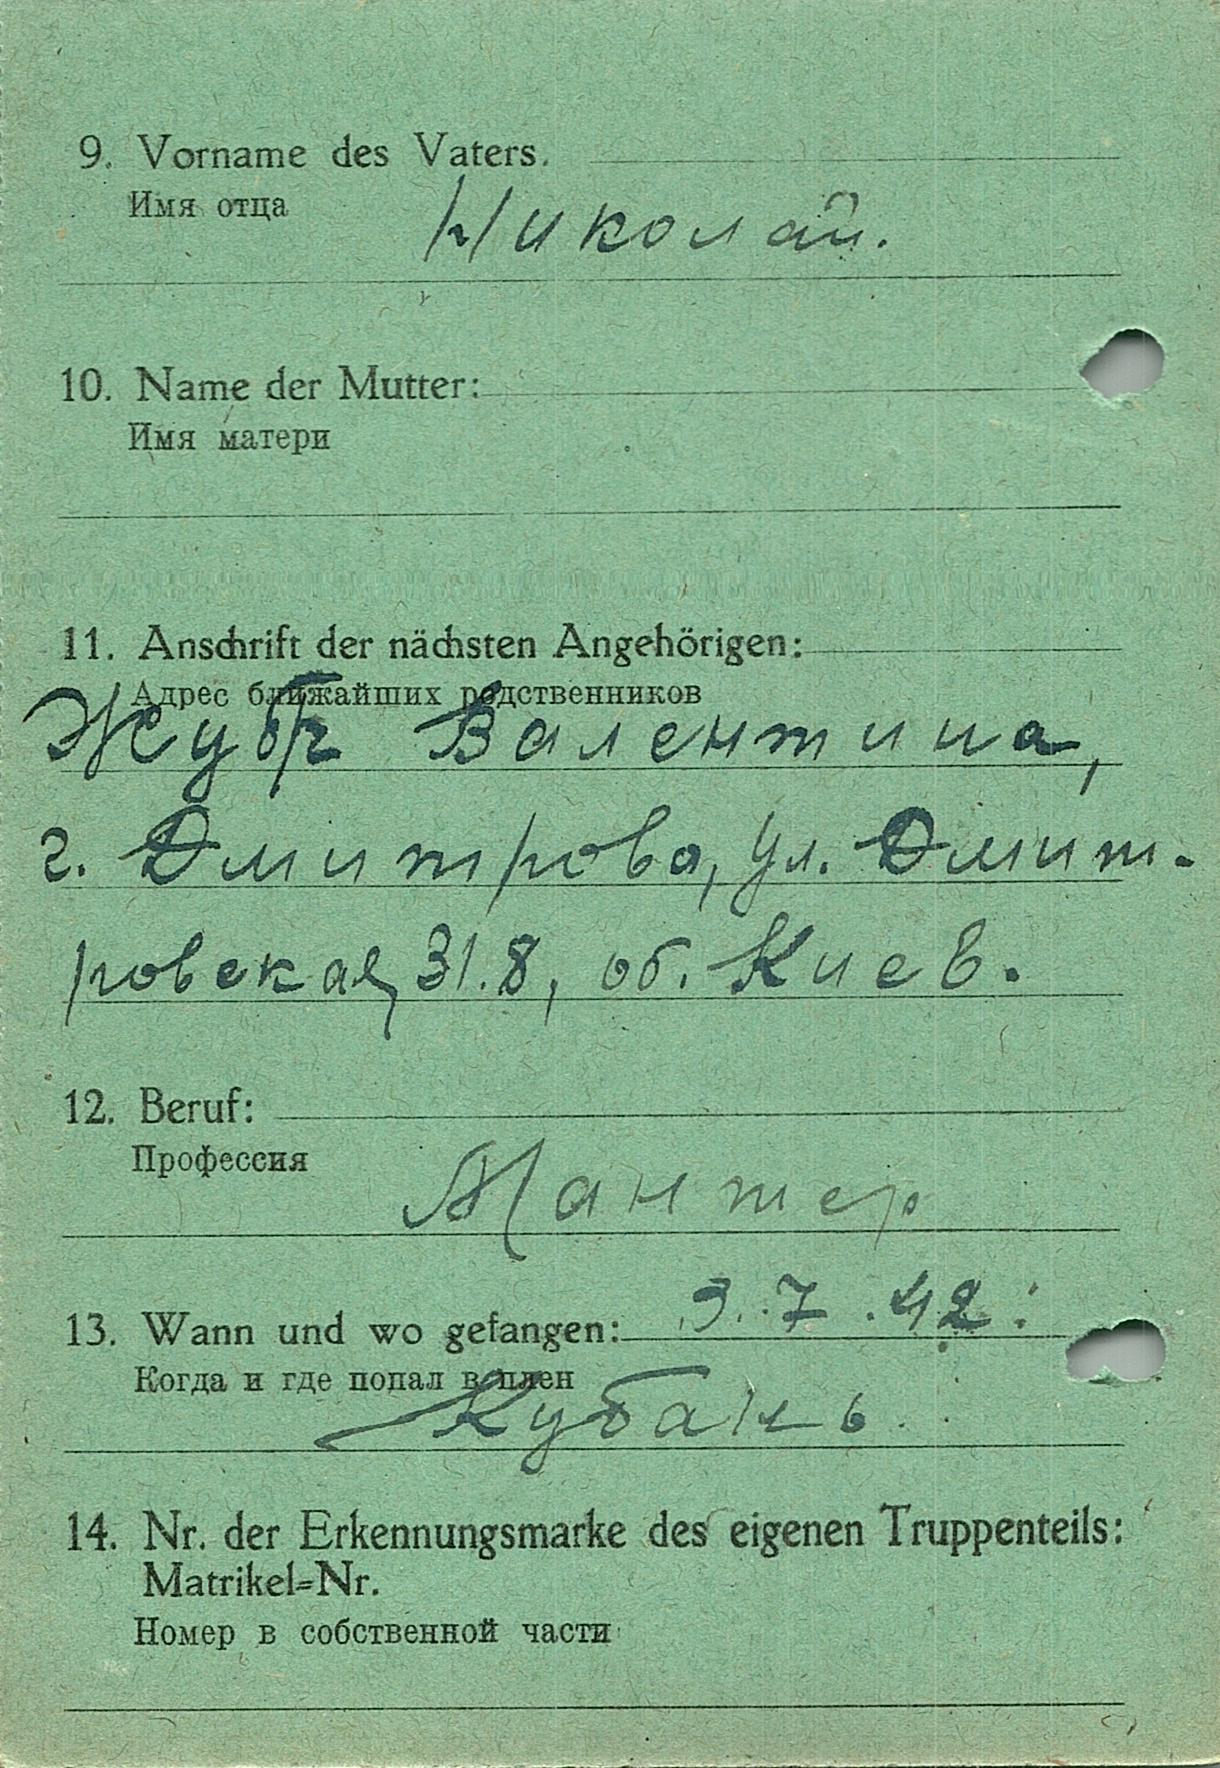 9. Vorname des Vaters.
Имя отца
Николай.
10. Name der Mutter:
Имя матери
11. Anschrift der nächsten Angehörigen:
Адрес ближайших родственников
Жубр Валентина,
г. Дмитрова, ул. Дмит-
ровская, 31.8, об. Киев.
12. Beruf:
Профессия
Мантер
13. Wann und wo gefangen: 3.7.42.
Когда и где попал в плен
Кубань.
14. Nr. der Erkennungsmarke des eigenen Truppenteils:
Matrikel=Nr.
Номер в собственной части